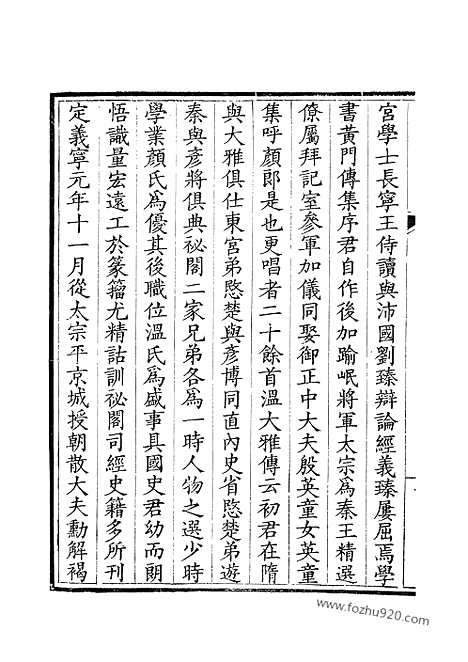 宮學士長寧王侍讀與沛國劉臻辯論經義臻屢屈焉學
書黃門傳集序君自作後加踰岷將軍太宗爲秦王精選
僚屬拜記室參軍加儀同娶御正中大夫殷英童女英童
集呼顏郎是也更唱者二十餘首溫大雅傳云初君在隋
與大雅俱仕東宮弟愍楚與彥博同直內史省愍楚弟遊
秦與彥將俱典祕閣二家兄弟各爲一時人物之選少時
學業顏氏爲優其後職位溫氏爲盛事具國史君幼而朗
悟識量宏遠工於篆籀尤精詁訓祕閣司經史籍多所刊
定義寧元年十一月從太宗平京城授朝散大夫勳解褐
www.fozhu920.com